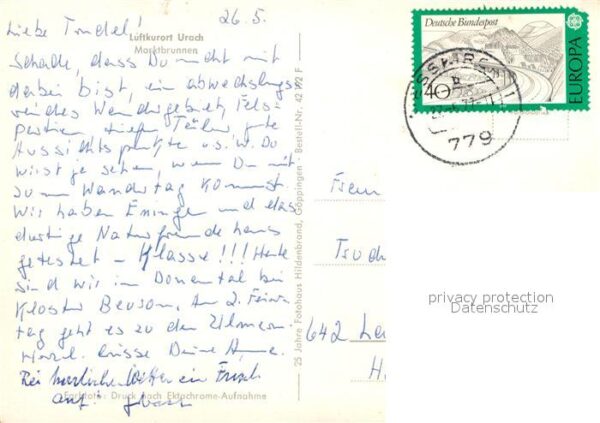 26.5.
Liebe Trudel!
Luftkurort Urach
Marktbrunnen
Schade, dass Du nicht mit
dabei bist, ein abwechslungs
reiches Wandergebiet, Fels-
partien, tiefen Tälern, gute
Aussichtspunkte u.s.w. Du
wirst ja sehen, wenn Du mit
zum Wandertag kommst.
Wir haben Eningen und das
dortige Naturfreundehaus
getestet – Klasse!!! Heute
sind wir im Donautal bei
Kloster Beuron. Am 2. Feier
tag geht es zu den
Herzl. Grüsse Deine
Bei herrlichem Wetter ein Frisch
auf!
Farbfoto: Druck nach Ektachrome-Aufnahme
25 Jahre Fotohaus Hildenbrand, Göppingen · Bestell-Nr. 42 192 F
Deutsche Bundespost
40
EUROPA
779
Frau
642
privacy protection
Datenschutz